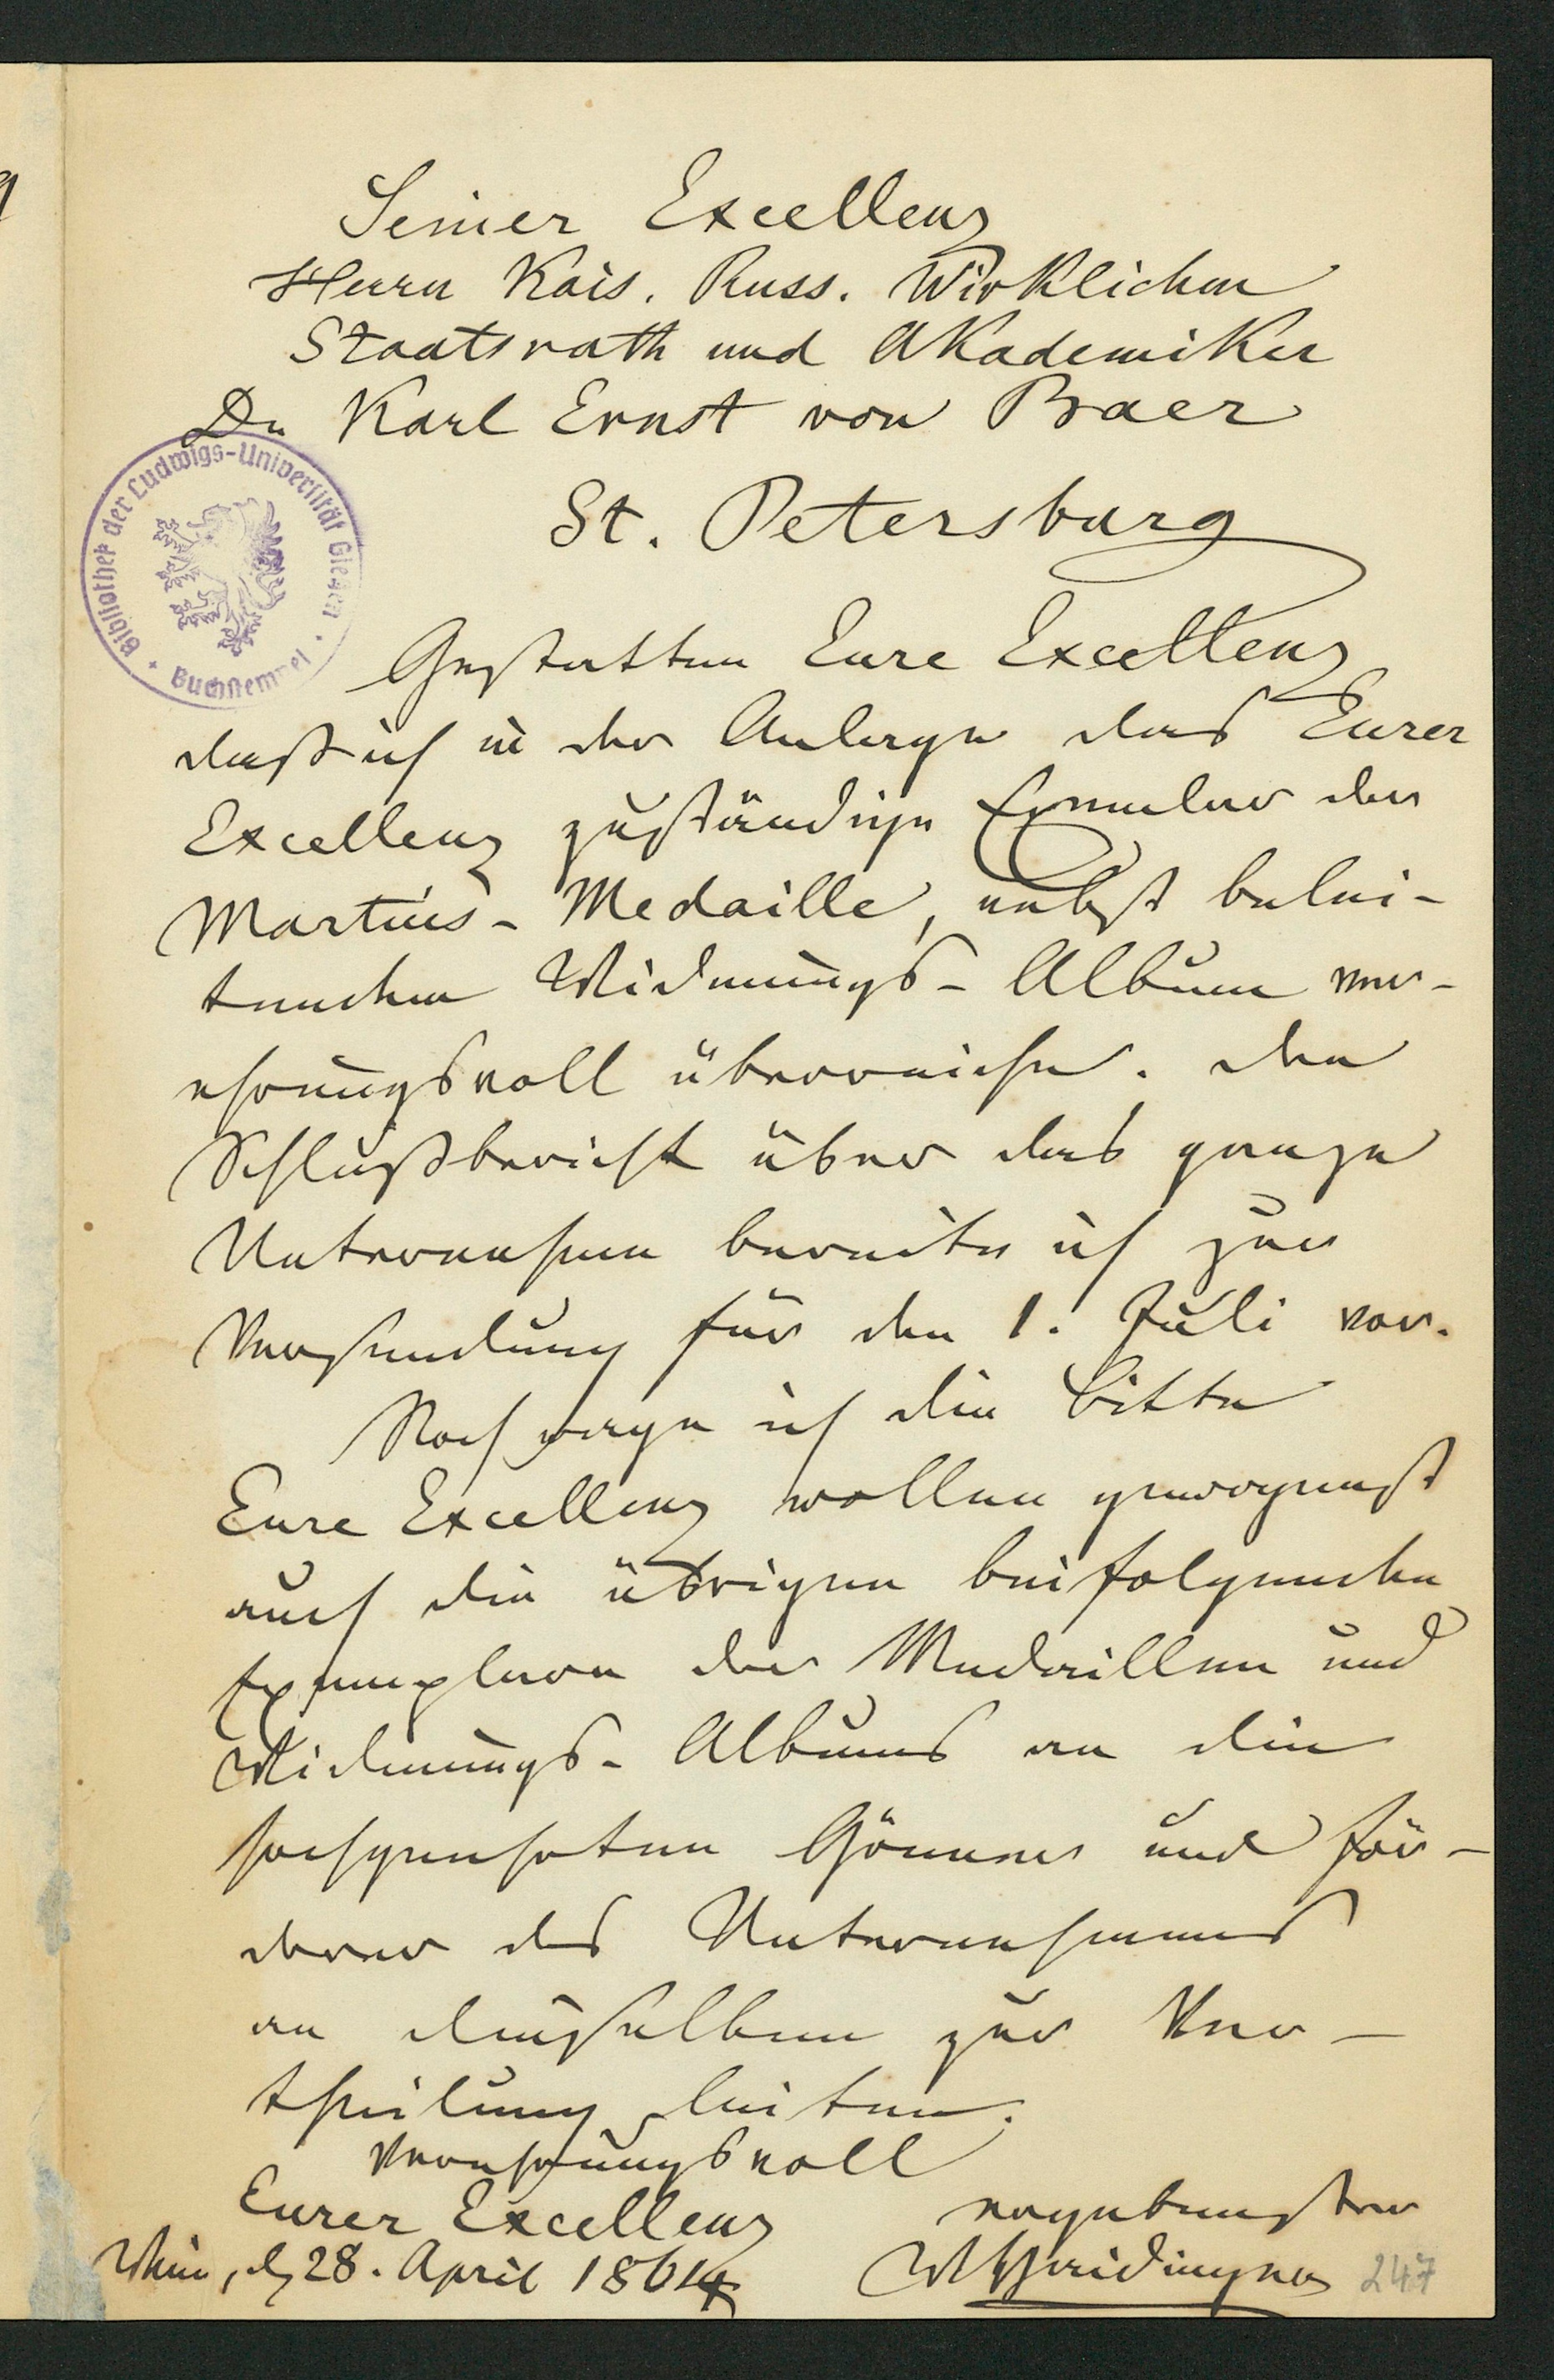 Seiner Excellenz
Herrn Kais. Russ. Wirklichen
Staatsrath und Akademiker
Dr Karl Ernst von Baer
St. Petersburg
Bibliothek der Ludwigs-Universität Giessen
Buchstempel
Gestatten Eure Excellenz
daß ich in der Anlage das Eurer
Excellenz zuständige Exemplar der
Martius-Medaille, nebst beglei-
tenden Widmungs-Album ver-
ehrungsvoll überreiche. Den
Schlußbericht über das ganze
Unternehmen bereite ich zur
Versendung für den 1. Juli vor.
Noch wage ich die Bitte
Eure Excellenz wollen gewogenst
auch die übrigen beifolgenden
Exemplare der Medaillen und
Widmungs-Albums an die
hochgeehrten Gönner und För-
derer des Unternehmens
an dieselben zur Ver-
theilung leiten.
Verehrungsvoll
Eurer Excellenz
ergebenster
Wien, d 28. April 1864
WHaidinger
247